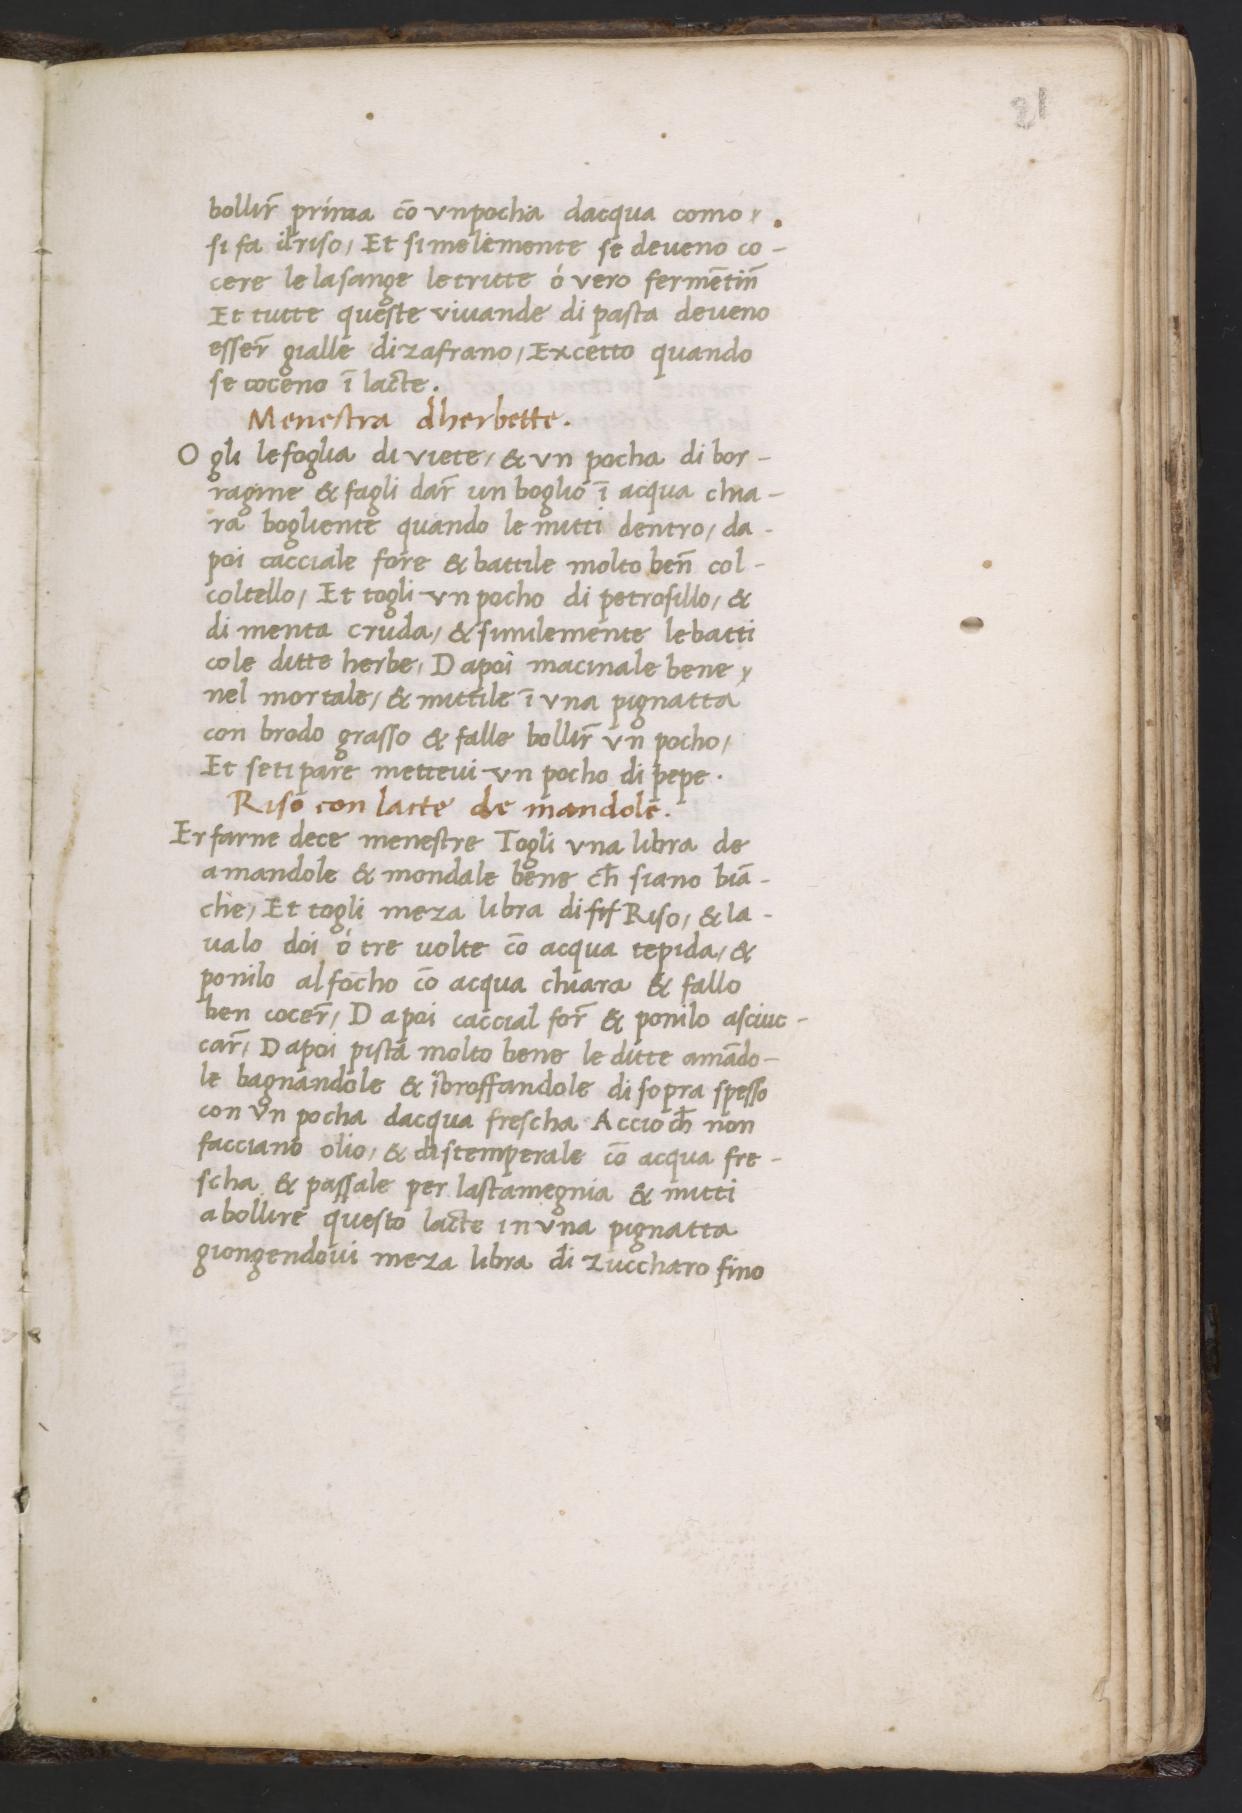 bollir̃ prima cõ vn pocha dacqua como
si fa il riso, Et simelemente se deueno co-
cere le lasange le tritte ó vero fermẽtiñ
Et tutte queste viuande di pasta deueno
esser̃ gialle di zafrano, Excetto quando
se coceno ĩ lacte.
Menestra dherbette.
O gli le foglia di viete, & vn pocha di bor-
ragine & fagli dar̃ un boglio ĩ acqua chia-
ra bogliente quando le mitti dentro, da-
poi cacciale fore & battile molto beñ col-
coltello, Et togli vn pocho di petrosillo, &
di menta cruda, & similemente le batti
cole ditte herbe, Dapoi macinale bene
nel mortale, & mittile ĩ vna pignatta
con brodo grasso & falle bollir̃ vn pocho,
Et se ti pare mettevi vn pocho di pepe.
Riso con lacte de mandole.
Er farne dece menestre Togli vna libra de
amandole & mondale bene ch̃ siano biã-
che, Et togli meza libra di Riso, & la-
ualo doi ó tre uolte cõ acqua tepida, &
ponilo al focho cõ acqua chiara & fallo
ben cocer̃, Dapoi caccial for̃ & ponilo asciuc-
car̃, Dapoi pista molto bene le ditte amãdo-
le bagnandole & sbroffandole di sopra spesso
con vn pocha dacqua frescha Accioch̃ non
facciano olio, & distemperale cõ acqua fre-
scha & passale per la stamegnia & mitti
a bollire questo lacte in vna pignatta
giongendoui meza libra di zuccharo fino